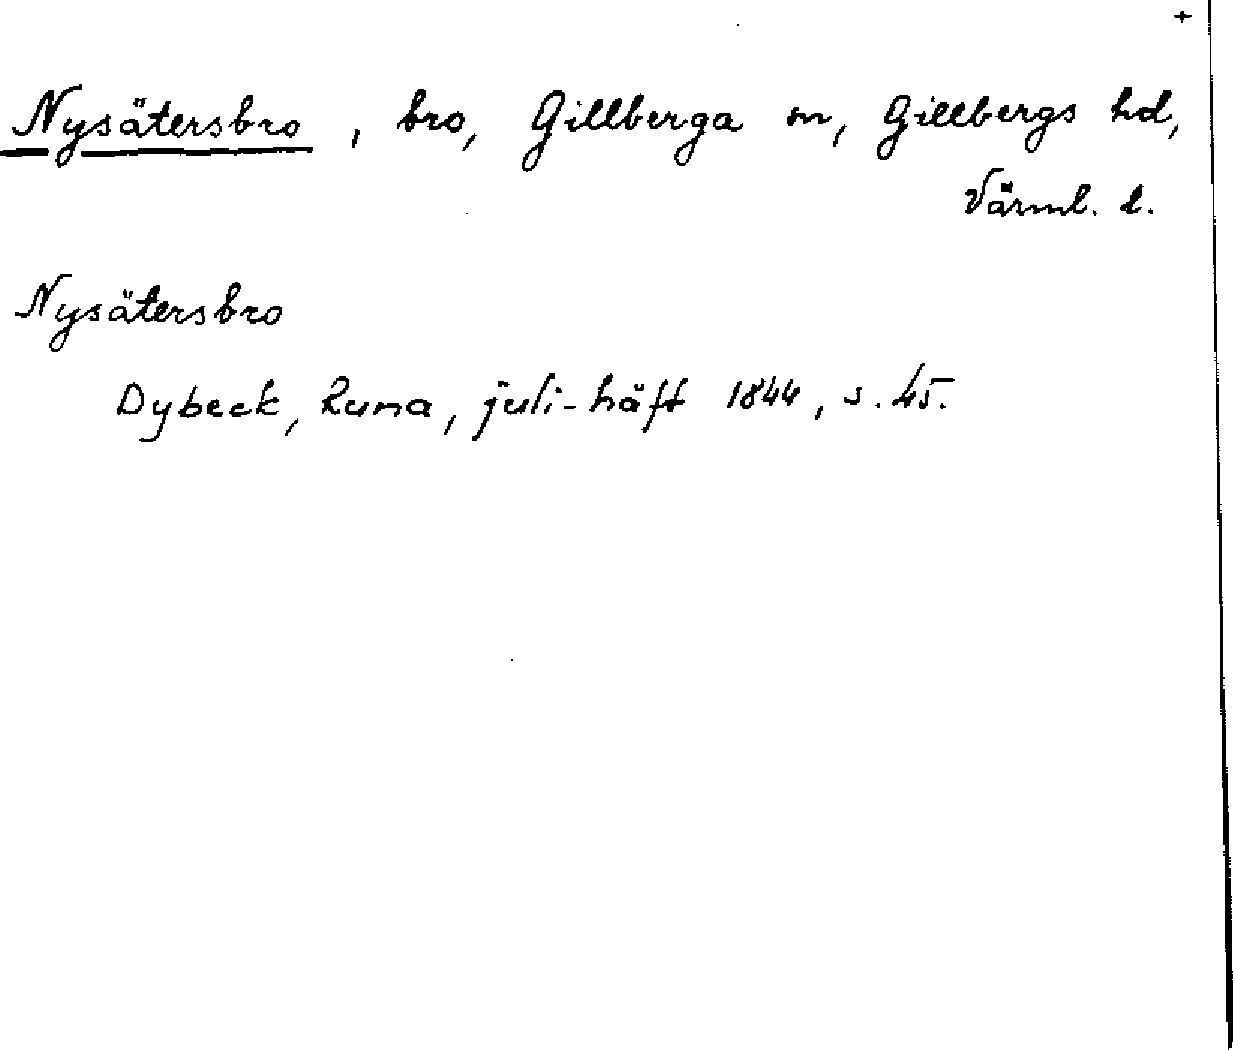 +
Nysätersbro, bro, Gillberga sn, Gillbergs hd,
Värml. l.
Nysätersbro
Dybeck, Runa, juli-häft 1844, s. 45.